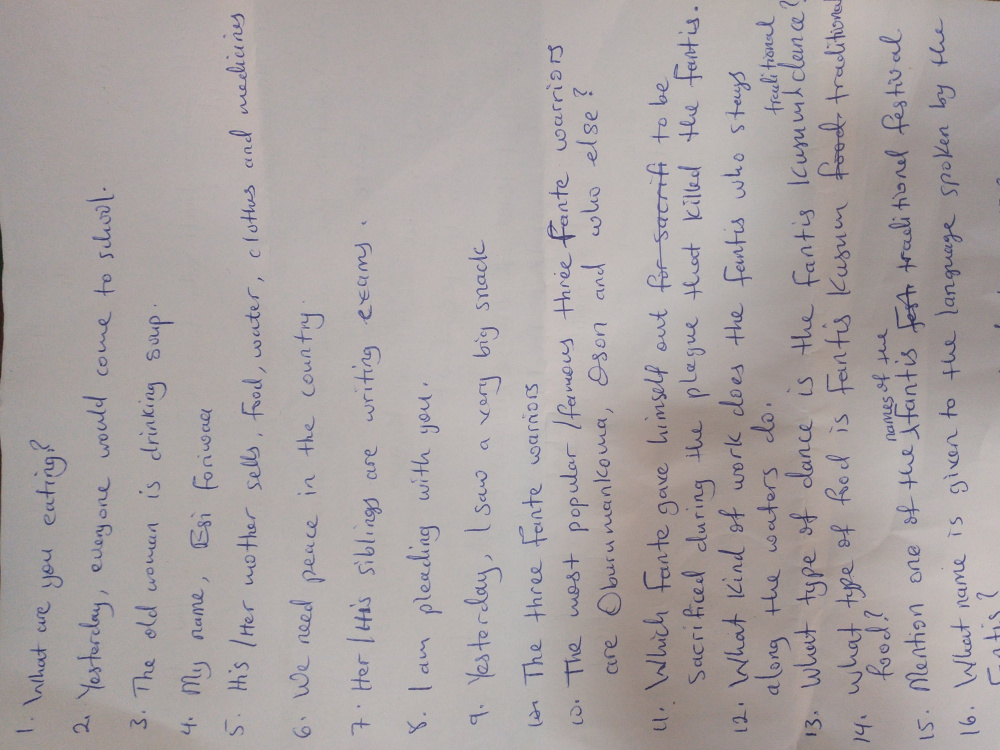 1. What are you eating?
2. Yesterday, everyone would come to school.
3. The old woman is drinking soup.
4. My name, Esi Foriwaa
5. His/Her mother sells, food, water, clothes and medicines
6. We need peace in the country.
7. Her/His siblings are writing exams.
8. I am pleading with you.
9. Yesterday, I saw a very big snack
10. The three Fante warriors
10. The most popular/famous three Fante warriors
are Obunumankoma, Oson and who else?
11. Which Fante gave himself out for sacrifi to be
sacrificed during the plague that killed the Fantis.
12. What kind of work does the Fantis who stays
along the waters do.
13. What type of dance is the Fantis Kusum traditional dance?
14. What type of food is Fantis Kusum food traditional
food?
15. Mention one of the names of the Fantis fest traditional festival
16. What name is given to the language spoken by the
Fantis?